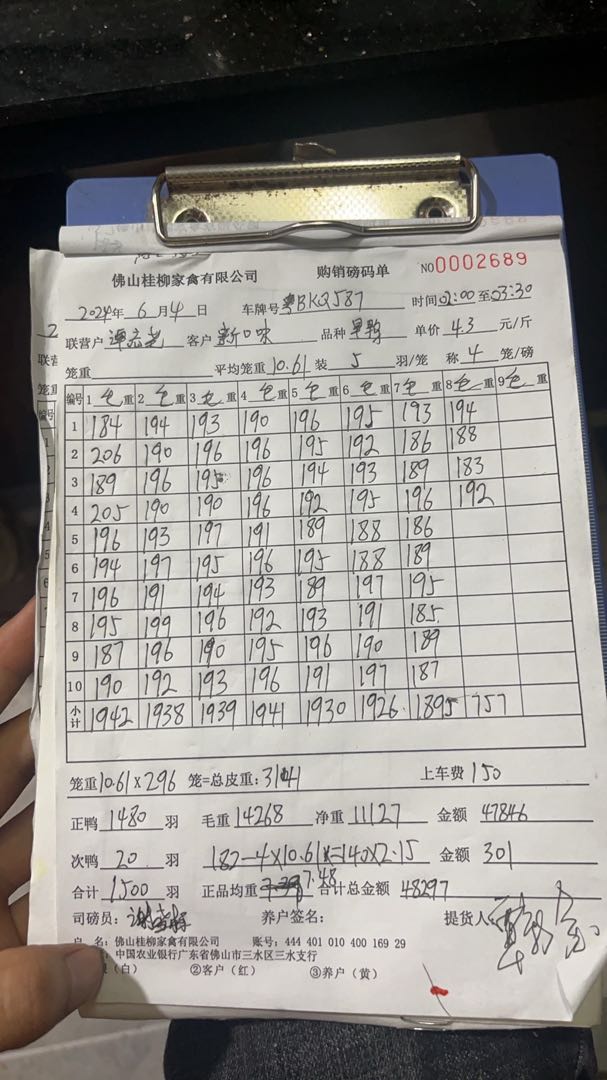 佛山桂柳家禽有限公司 购销磅码单 NO0002689
2024年 6月4日 车牌号粤BKQ587 时间02:00至03:30
联营户 客户 新口味 品种 单价 4.3 元/斤
笼重 平均笼重10.61装 5 羽/笼 称 4 笼/磅
编号 1 毛 重 2 毛 重 3 毛 重 4 毛 重 5 毛 重 6 毛 重 7 毛 重 8 毛 重 9 毛 重
1 184 194 193 190 196 195 193 194
2 206 190 196 196 195 192 186 188
3 189 196 195 196 194 193 189 183
4 205 190 190 196 192 195 196 192
5 196 193 197 191 189 188 186
6 194 197 195 196 195 188 189
7 196 191 194 193 189 197 195
8 195 199 196 192 193 191 185
9 187 196 190 195 196 190 189
10 190 192 193 196 191 197 187
小计 1942 1938 1939 1941 1930 1926 1895 757
笼重10.61×296 笼=总皮重:3141 上车费 150
正鸭 1480 羽 毛重 14268 净重 11127 金额 47846
次鸭 20 羽 182-4×10.61=140×2.15 金额 301
合计 1500 羽 正品均重 7.48 合计总金额 48297
司磅员: 养户签名: 提货人:
户 名:佛山桂柳家禽有限公司 账号:444 401 010 400 169 29
中国农业银行广东省佛山市三水区三水支行
(白) ②客户(红) ③养户(黄)